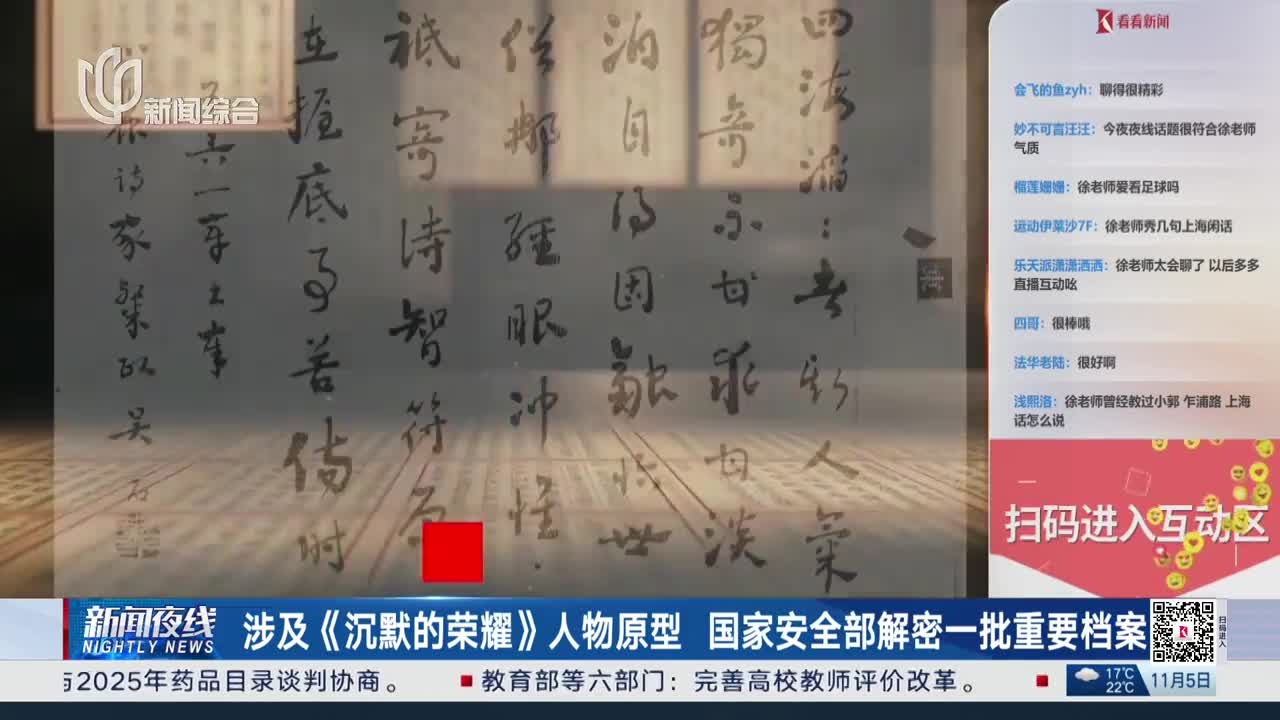 新闻综合
四海滔
人氣
泊自得因
世
經眼沖懷
祇寄詩智符
在握底事苦傷時
詩家粲政 吴石
看看新闻
会飞的鱼zyh：聊得很精彩
妙不可言汪汪：今夜夜线话题很符合徐老师
气质
榴莲姗姗：徐老师爱看足球吗
运动伊莱沙7F：徐老师秀几句上海闲话
乐天派潇潇洒洒：徐老师太会聊了 以后多多
直播互动吆
四哥：很棒哦
法华老陆：很好啊
浅熙洛：徐老师曾经教过小郭 乍浦路 上海
话怎么说
扫码进入互动区
新闻夜线
NIGHTLY NEWS
涉及《沉默的荣耀》人物原型 国家安全部解密一批重要档案
扫码进入
与2025年药品目录谈判协商。 教育部等六部门：完善高校教师评价改革。
17℃
22℃
11月5日